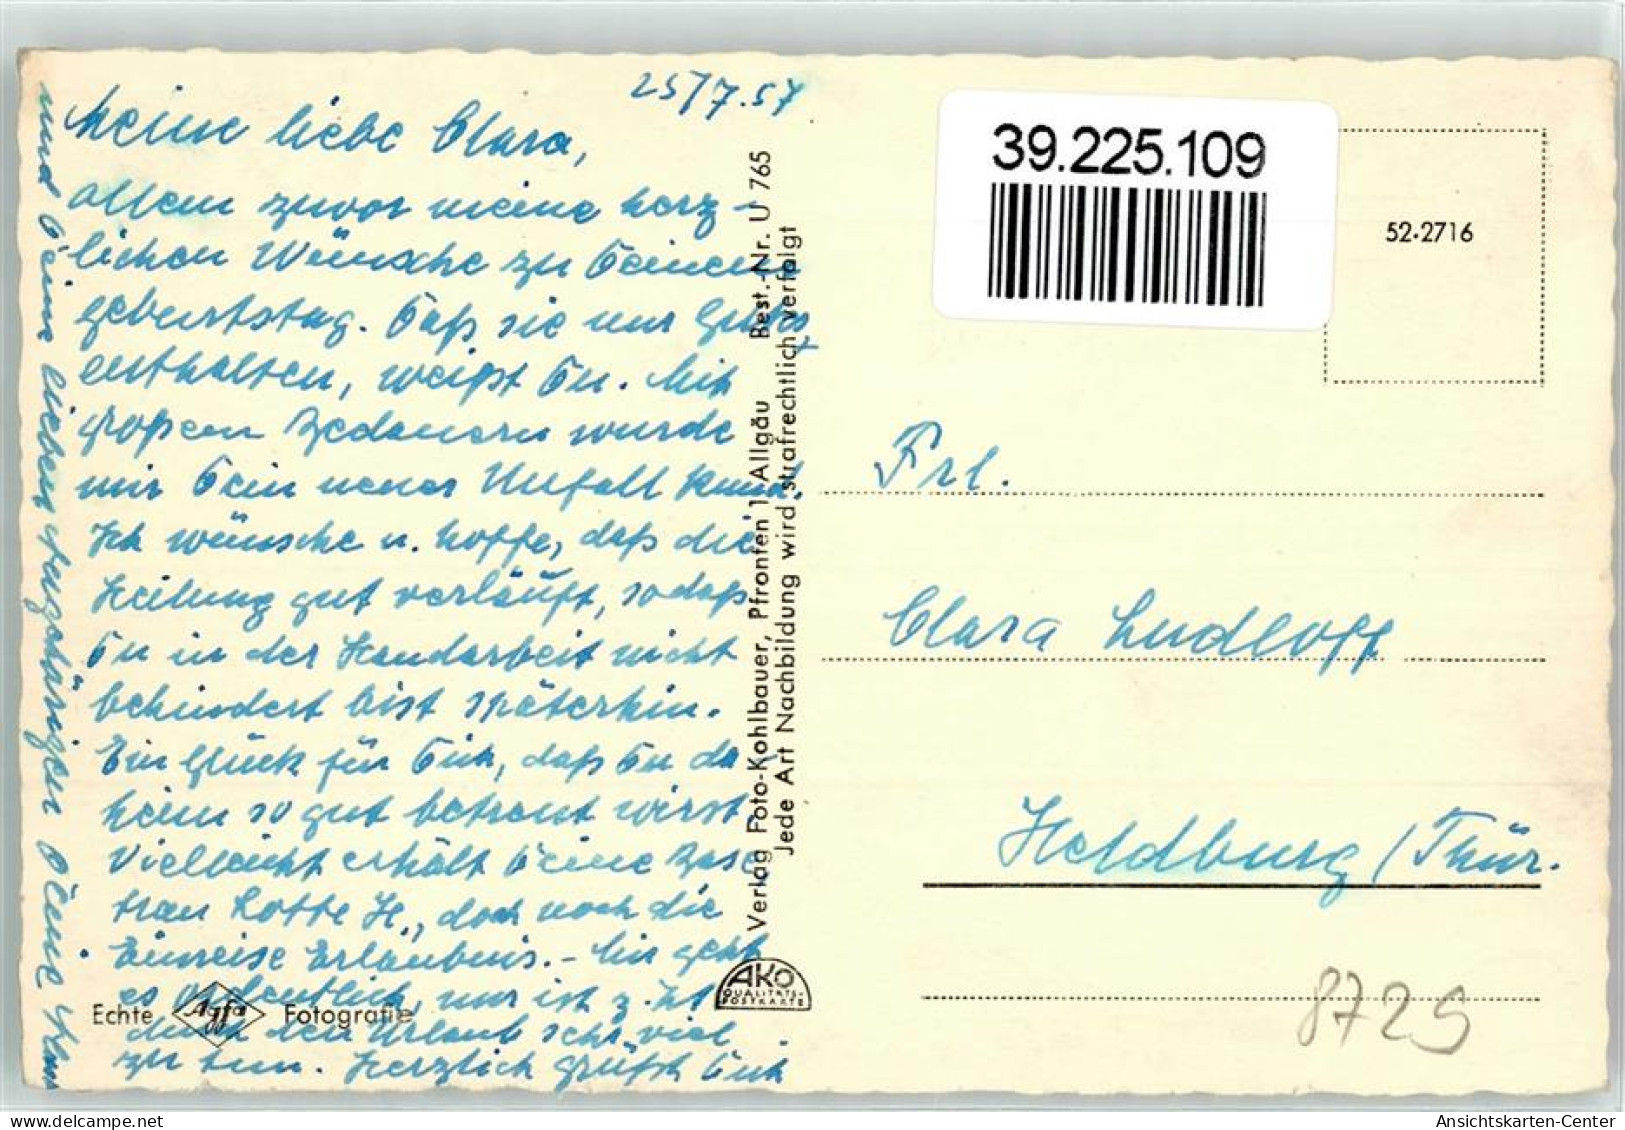 25/7.57
Meine liebe Clara,
Allem zuvor meine herz-
lichen Wünsche zu Deinem
Geburtstag. Daß sie nur Gutes
enthalten, weißt Du. Mit
großem Bedauern wurde
mir Dein neuer Unfall kund.
Ich wünsche u. hoffe, daß die
Heilung gut verläuft, sodaß
Du in der Handarbeit nicht
behindert bist späterhin.
Ein Glück für Dich, daß Du da-
heim so gut betreut wirst.
Vielleicht erhält Deine Base
Frau Lotte H., doch noch die
Einreise Erlaubnis. - Mir geht
es ordentlich, nur ist z. Zt
durch den Urlaub sehr viel
zu tun. Herzlich grüßt Dich
und Deine lieben Angehörigen Deine
Echte Agfa Fotografie
Verlag Foto-Kohlbauer, Pfronten 1 Allgäu Best.-Nr. U 765
Jede Art Nachbildung wird strafrechtlich verfolgt
AKO
QUALITÄTS-
POSTKARTE
39.225.109
52-2716
Frl.
Clara Ludloff
Heldburg / Thür.
8729
Ansichtskarten-Center